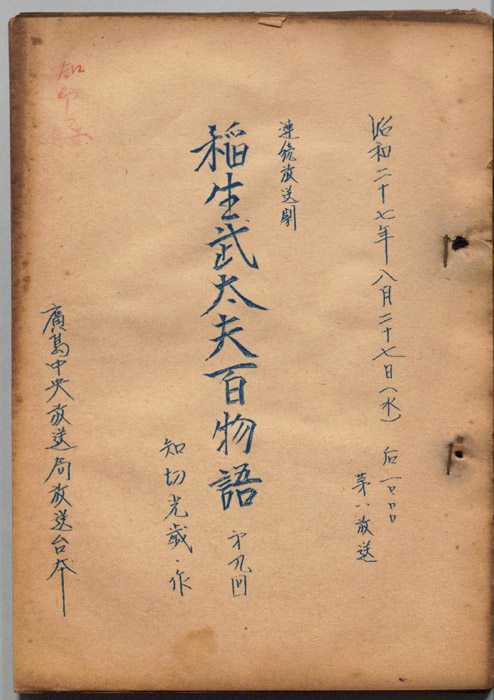 昭和二十七年八月二十七日(水)
第八放送
連続放送劇
稲生武太夫百物語
第九回
知切光歳・作
廣島中央放送局放送台本